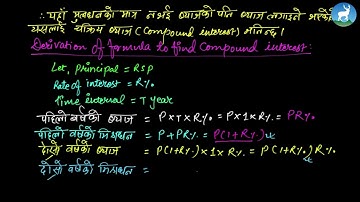 ∴ यहाँ मुलधनको मात्र नभई ब्याजको पनि ब्याज लगाइने भएकोले
यसलाई चक्रिय ब्याज (Compound interest) भनिन्छ।
Derivation of formula to find Compound interest:
Let, principal = RS P
Rate of interest = R%
Time interval = T year
पहिलो वर्षको ब्याज = P×T×R% = P×1×R% = PR%
पहिलो वर्षको मिश्रधन = P+PR% = P(1+R%)
दोस्रो वर्षको ब्याज = P(1+R%)×1×R% = P(1+R%)R%
दोस्रो वर्षको मिश्रधन =